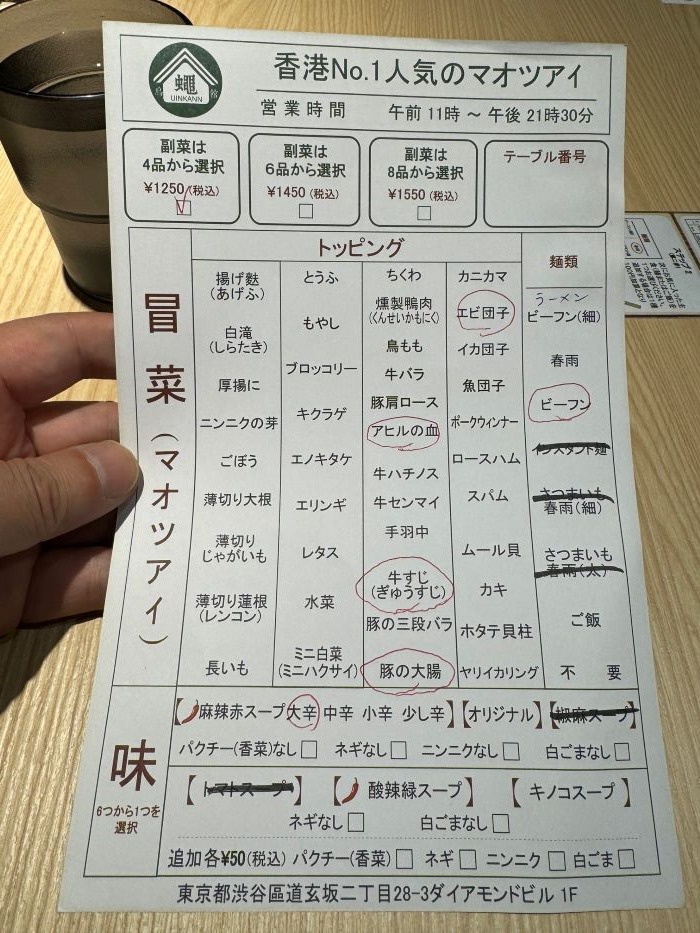 蠅
UINKANN
香港No.1人気のマオツアイ
営業時間 午前 11時 ～ 午後 21時30分
副菜は
4品から選択
¥1250(税込)
副菜は
6品から選択
¥1450(税込)
副菜は
8品から選択
¥1550(税込)
テーブル番号
冒菜(マオツアイ)
トッピング
揚げ麩
(あげふ)
白滝
(しらたき)
厚揚に
ニンニクの芽
ごぼう
薄切り大根
薄切り
じゃがいも
薄切り蓮根
(レンコン)
長いも
とうふ
もやし
ブロッコリー
キクラゲ
エノキタケ
エリンギ
レタス
水菜
ミニ白菜
(ミニハクサイ)
ちくわ
燻製鴨肉
(くんせいかもにく)
鳥もも
牛バラ
豚肩ロース
アヒルの血
牛ハチノス
牛センマイ
手羽中
牛すじ
(ぎゅうすじ)
豚の三段バラ
豚の大腸
カニカマ
エビ団子
イカ団子
魚団子
ポークウィンナー
ロースハム
スパム
ムール貝
カキ
ホタテ貝柱
ヤリイカリング
麺類
ラーメン
ビーフン(細)
春雨
ビーフン
インスタント麺
さつまいも
春雨(細)
さつまいも
春雨(太)
ご飯
不 要
味
6つから1つを
選択
【麻辣赤スープ大辛 中辛 小辛 少し辛】【オリジナル】【椒麻スープ】
パクチー(香菜)なし ネギなし ニンニクなし 白ごまなし
【トマトスープ】 【酸辣緑スープ】 【キノコスープ】
ネギなし 白ごまなし
追加各¥50(税込) パクチー(香菜) ネギ ニンニク 白ごま
東京都渋谷區道玄坂二丁目28-3ダイアモンドビル 1F